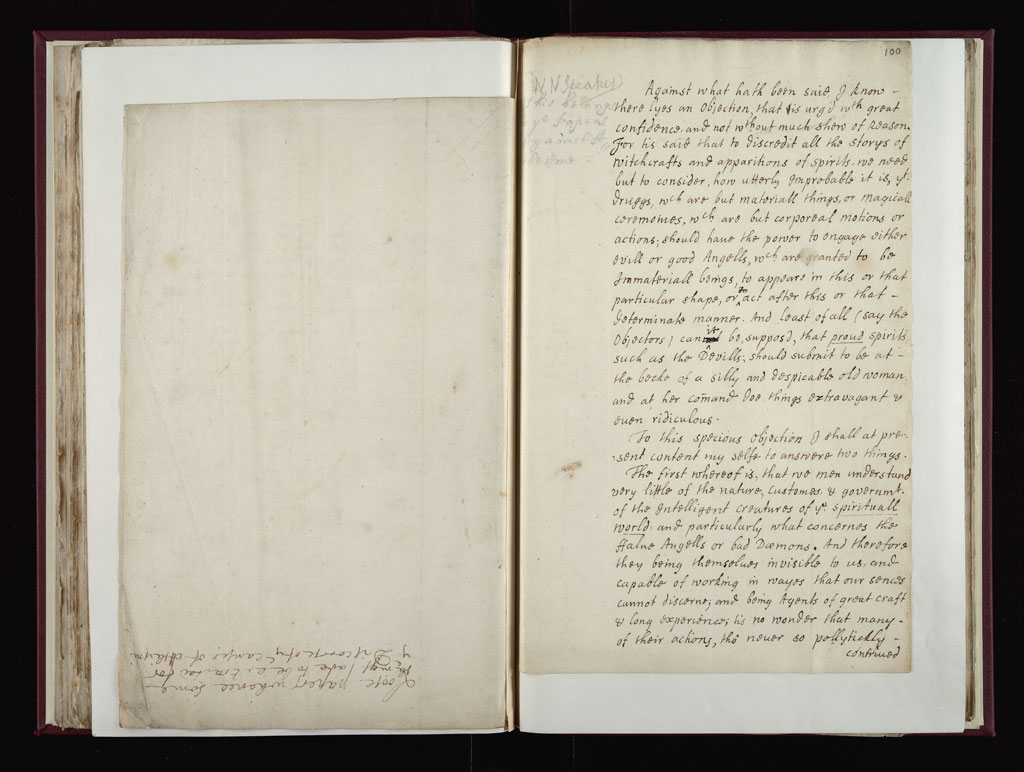 Loose papers whence some
may serve to be transcribed for
ye Discourse of ye causes of Atheism
100
N N Speakes
this belongs
ye papers
against
Against what hath been said, I know -
there lyes an Objection, that is urg'd wth great
confidence, and not wthout much shew of Reason.
For tis said that to discredit all the storys of
witchcrafts and apparitions of spirits, we need
but to consider, how utterly Improbable it is, yt
Druggs, wch are but materiall things, or magicall
ceremonies, wch are but corporeal motions or
actions; should have the power to engage either
evill or good Angells, wch are granted to be
Immateriall beings, to appeare in this or that
particular shape, or to act after this or that -
determinate manner. And least of all (say the
Objectors) can it be suppos'd, that proud spirits
such as the Devills, should submit to be at -
the becke of a silly and despicable old woman
and at her com̄and doe things extravagant &
even ridiculous.
To this specious Objection I shall at pre-
sent content my selfe to answere two things.
The first whereof is, that we men understand
very little of the nature, customes & governmt.
of the Intelligent creatures of ye spirituall
world: and particularly what concernes the
Falne Angells or bad Dæmons. And therefore
they being themselves invisible to us, and
capable of working in wayes that our sences
cannot discerne; and being Agents of great craft
& long experience; tis no wonder that many -
of their actions, tho never so pollytickly -
contrived